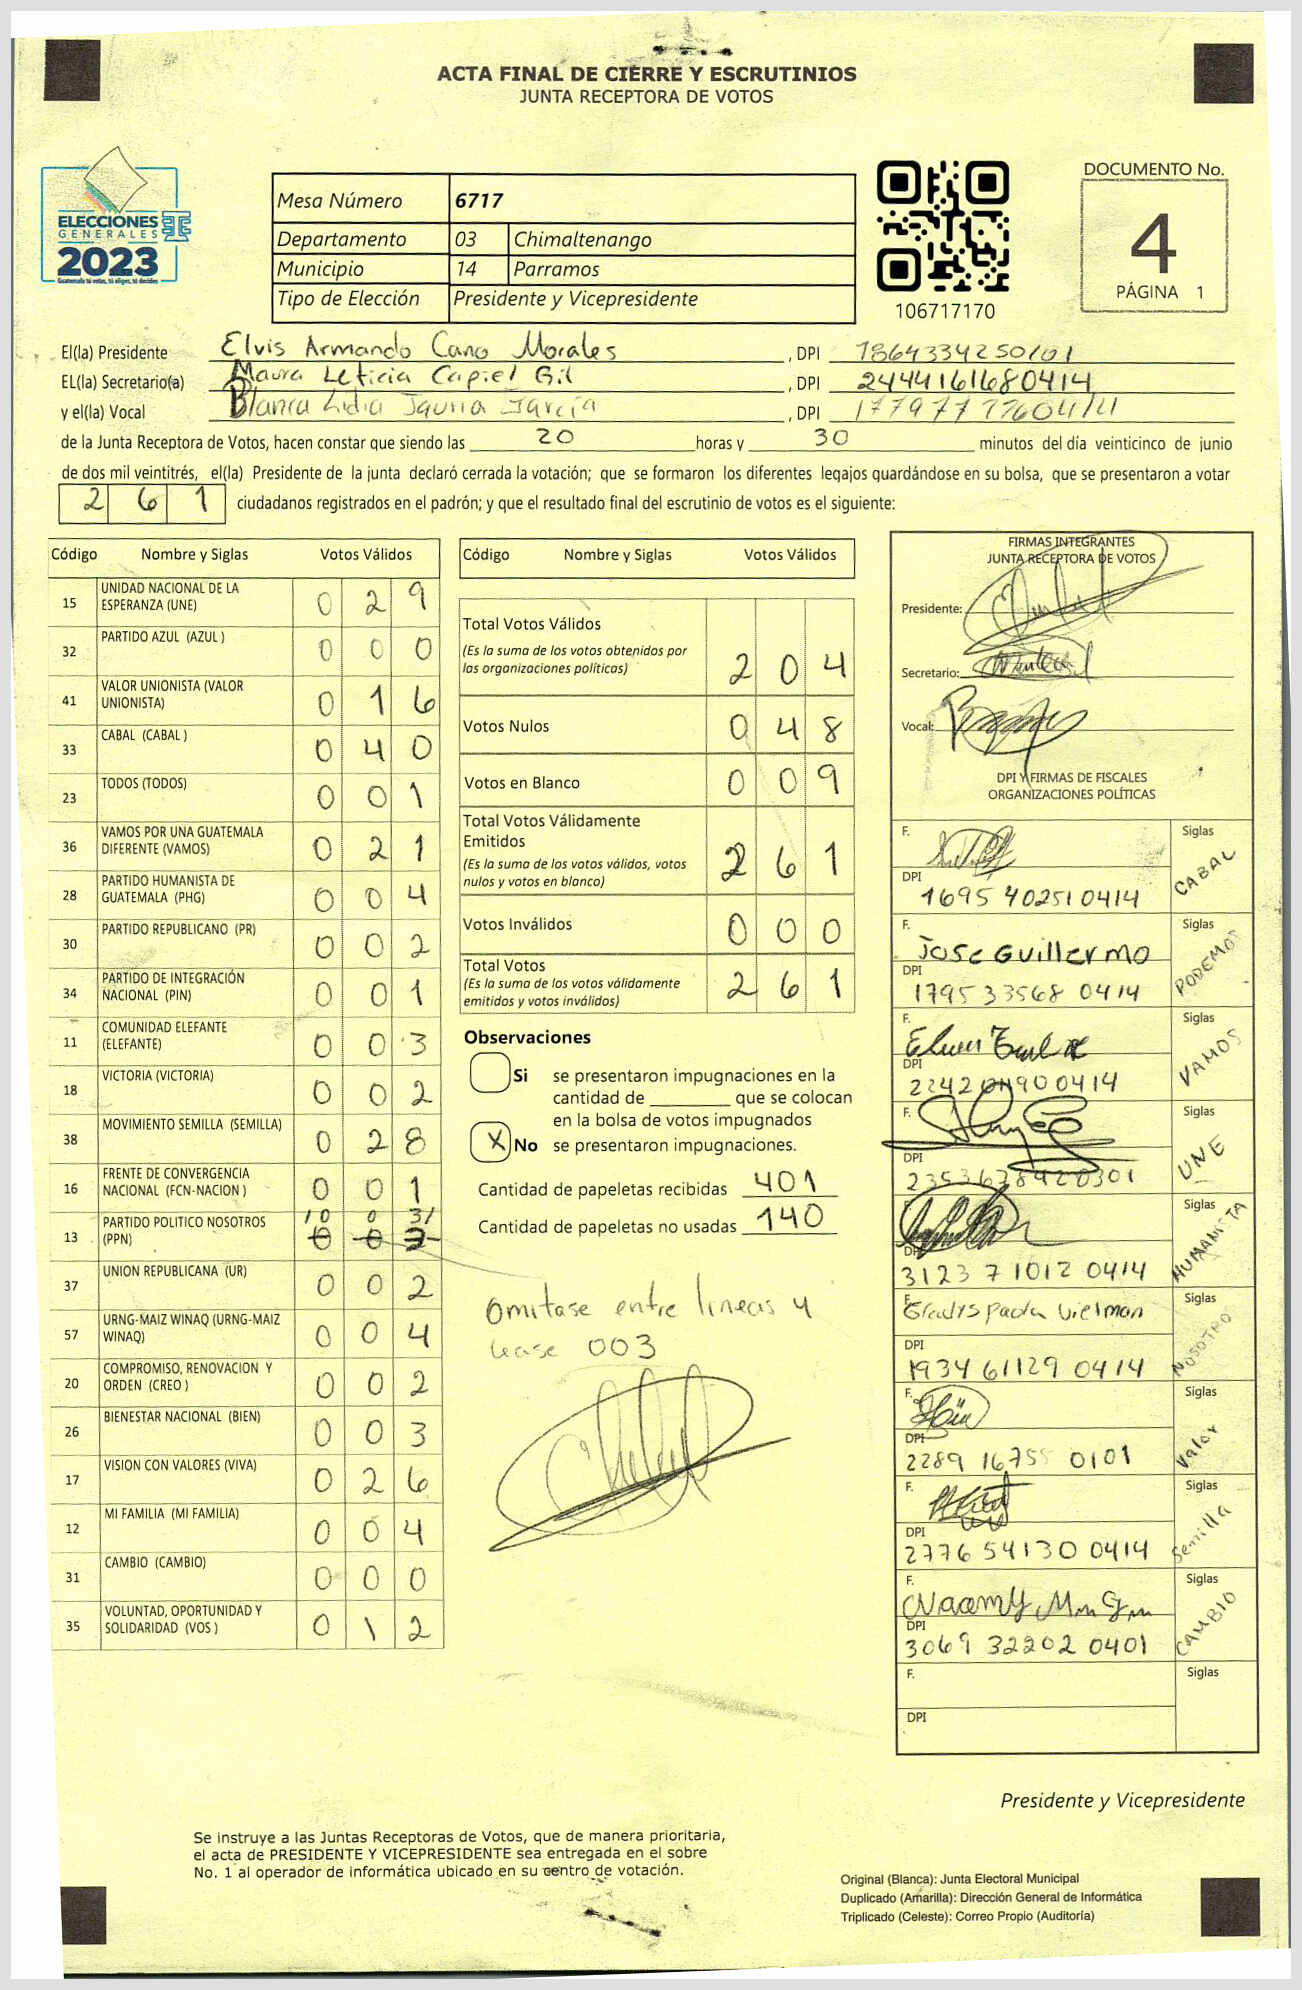 ACTA FINAL DE CIERRE Y ESCRUTINIOS
JUNTA RECEPTORA DE VOTOS
ELECCIONES
GENERALES
2023
Guatemala tú votas, tú eliges, tú decides
Mesa Número 6717
Departamento 03 Chimaltenango
Municipio 14 Parramos
Tipo de Elección Presidente y Vicepresidente
106717170
DOCUMENTO No.
4
PÁGINA 1
El(la) Presidente Elvis Armando Cano Morales , DPI 1864334250101
EL(la) Secretario(a) Maura Leticia Capiel Gil , DPI 2444161680414
y el(la) Vocal Blanca Lidia García , DPI
de la Junta Receptora de Votos, hacen constar que siendo las 20 horas y 30 minutos del día veinticinco de junio
de dos mil veintitrés, el(la) Presidente de la junta declaró cerrada la votación; que se formaron los diferentes legajos quardándose en su bolsa, que se presentaron a votar
261 ciudadanos registrados en el padrón; y que el resultado final del escrutinio de votos es el siguiente:
Código Nombre y Siglas Votos Válidos
15 UNIDAD NACIONAL DE LA ESPERANZA (UNE) 0 2 9
32 PARTIDO AZUL (AZUL ) 0 0 0
41 VALOR UNIONISTA (VALOR UNIONISTA) 0 1 6
33 CABAL (CABAL ) 0 4 0
23 TODOS (TODOS) 0 0 1
36 VAMOS POR UNA GUATEMALA DIFERENTE (VAMOS) 0 2 1
28 PARTIDO HUMANISTA DE GUATEMALA (PHG) 0 0 4
30 PARTIDO REPUBLICANO (PR) 0 0 2
34 PARTIDO DE INTEGRACIÓN NACIONAL (PIN) 0 0 1
11 COMUNIDAD ELEFANTE (ELEFANTE) 0 0 3
18 VICTORIA (VICTORIA) 0 0 2
38 MOVIMIENTO SEMILLA (SEMILLA) 0 2 8
16 FRENTE DE CONVERGENCIA NACIONAL (FCN-NACION ) 0 0 1
13 PARTIDO POLITICO NOSOTROS (PPN) /0 0 3/
37 UNION REPUBLICANA (UR) 0 0 2
57 URNG-MAIZ WINAQ (URNG-MAIZ WINAQ) 0 0 4
20 COMPROMISO, RENOVACION Y ORDEN (CREO ) 0 0 2
26 BIENESTAR NACIONAL (BIEN) 0 0 3
17 VISION CON VALORES (VIVA) 0 2 6
12 MI FAMILIA (MI FAMILIA) 0 0 4
31 CAMBIO (CAMBIO) 0 0 0
35 VOLUNTAD, OPORTUNIDAD Y SOLIDARIDAD (VOS ) 0 1 2
Código Nombre y Siglas Votos Válidos
Total Votos Válidos
(Es la suma de los votos obtenidos por
las organizaciones políticas) 2 0 4
Votos Nulos 0 4 8
Votos en Blanco 0 0 9
Total Votos Válidamente
Emitidos
(Es la suma de los votos válidos, votos
nulos y votos en blanco) 2 6 1
Votos Inválidos 0 0 0
Total Votos
(Es la suma de los votos válidamente
emitidos y votos inválidos) 2 6 1
Observaciones
Si se presentaron impugnaciones en la
cantidad de ________ que se colocan
en la bolsa de votos impugnados
X No se presentaron impugnaciones.
Cantidad de papeletas recibidas 401
Cantidad de papeletas no usadas 140
omitase entre lineas y
lease 003
FIRMAS INTEGRANTES
JUNTA RECEPTORA DE VOTOS
Presidente:
Secretario:
Vocal:
DPI Y FIRMAS DE FISCALES
ORGANIZACIONES POLÍTICAS
F. Siglas CABAL
DPI 1695 40251 0414
F. Jose Guillermo Siglas PODEMOS
DPI 1795 33568 0414
F. Siglas VAMOS
DPI
F. Siglas UNE
DPI
Siglas HUMANISTA
DPI 3123 71012 0414
F. Gladys Paola Vielman Siglas NOSOTRO
DPI 1934 61129 0414
F. Siglas Valor
DPI 2289 16755 0101
F. Siglas Semilla
DPI 2776 54130 0414
F. Naomy Siglas CAMBIO
DPI 3069 32202 0401
F. Siglas
DPI
Presidente y Vicepresidente
Se instruye a las Juntas Receptoras de Votos, que de manera prioritaria,
el acta de PRESIDENTE Y VICEPRESIDENTE sea entregada en el sobre
No. 1 al operador de informática ubicado en su centro de votación.
Original (Blanca): Junta Electoral Municipal
Duplicado (Amarilla): Dirección General de Informática
Triplicado (Celeste): Correo Propio (Auditoría)